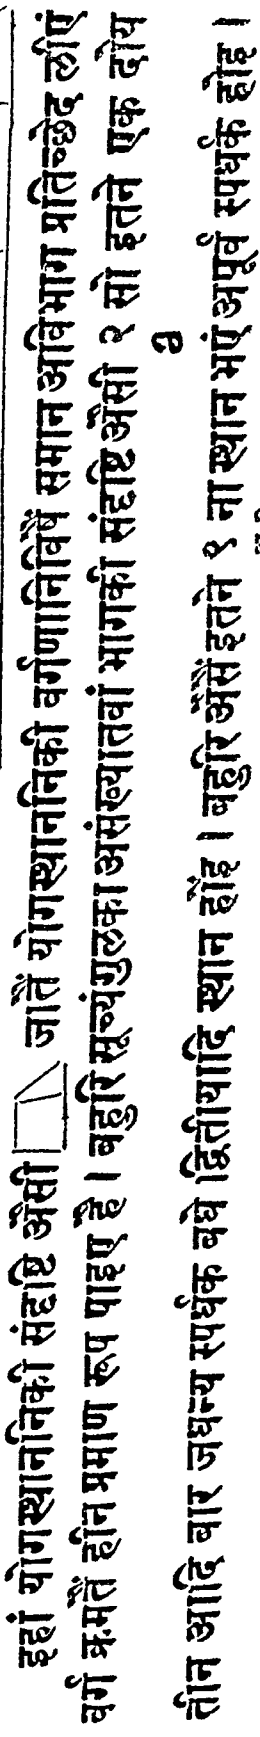 इहां योगस्थाननिकी संदृष्टि अैसी जातैं योगस्थाननिकी वर्गणानिविषै समान अविभाग प्रतिच्छेद लीएं
वर्ग क्रमतैं हीन प्रमाण रूप पाइए है । बहुरि सूच्यंगुलका असंख्यातवां भागकी संदृष्टि अैसी २ सो इतने एक दोय
a
तीन आदि बार जघन्य स्पर्धक बधे द्वितीयादि स्थान होंइ । बहुरि अैसैं इतने १ ना स्थान भएं अपूर्व स्पर्धक होइ ।